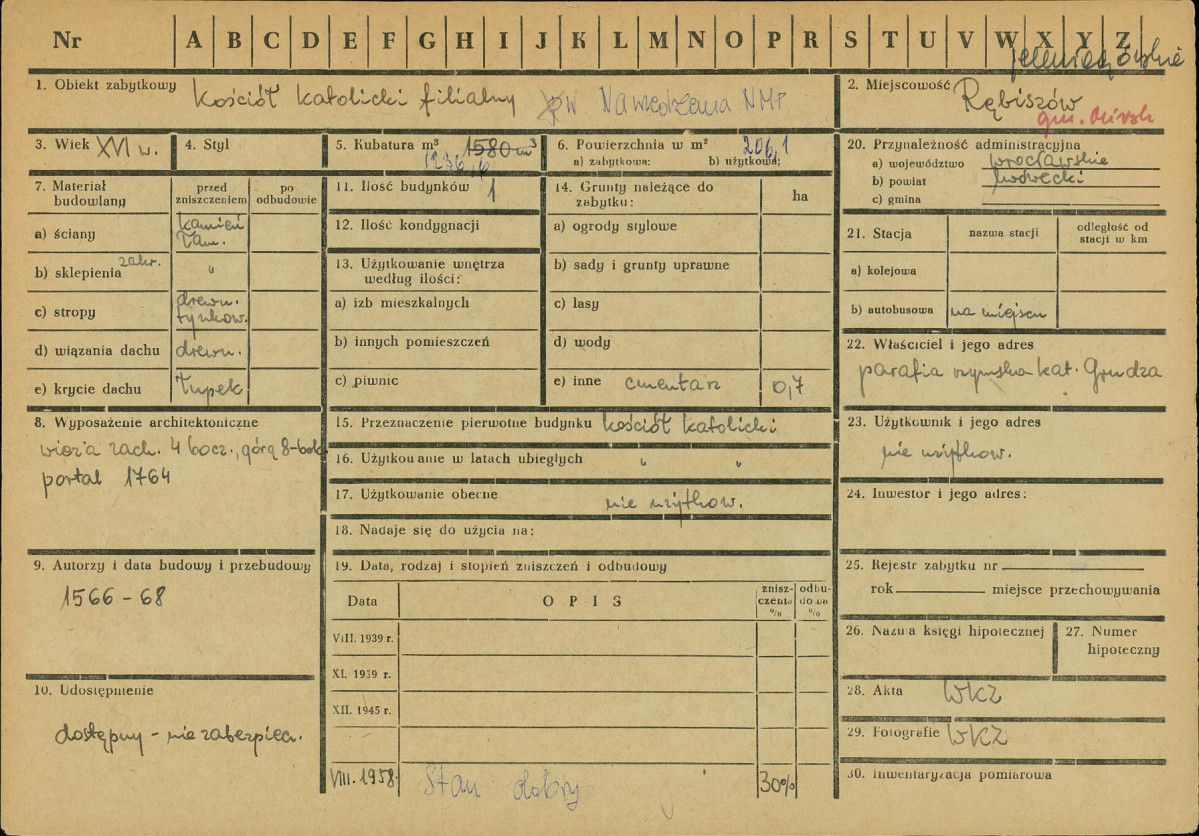 Nr A B C D E F G H I J K L M N O P R S T U V W X Y Z
jeleniogórskie
1. Obiekt zabytkowy Kościół katolicki filialny pw Nawiedzenia NMP
2. Miejscowość Rębiszów
gm. Mirsk
3. Wiek XVI w.
4. Styl
5. Kubatura m³ 1580 m³
1236,6
6. Powierzchnia w m² 206,1
a) zabytkowa: b) użytkowa:
20. Przynależność administracyjna
a) województwo wrocławskie
b) powiat lwówecki
c) gmina
7. Materiał budowlany
przed zniszczeniem
po odbudowie
a) ściany kamień łam.
b) sklepienia zakr. "
c) stropy drewn. tynkow.
d) wiązania dachu drewn.
e) krycie dachu łupek
11. Ilość budynków 1
12. Ilość kondygnacji
13. Użytkowanie wnętrza według ilości:
a) izb mieszkalnych
b) innych pomieszczeń
c) piwnic
14. Grunty należące do zabytku: ha
a) ogrody stylowe
b) sady i grunty uprawne
c) lasy
d) wody
e) inne cmentarz 0,7
21. Stacja
nazwa stacji
odległość od stacji w km
a) kolejowa
b) autobusowa na miejscu
22. Właściciel i jego adres
parafia rzymsko kat. Grudza
8. Wyposażenie architektoniczne
wieża zach. 4 bocz., górą 8-bok
portal 1764
15. Przeznaczenie pierwotne budynku kościół katolicki
16. Użytkowanie w latach ubiegłych " "
17. Użytkowanie obecne nie użytkow.
18. Nadaje się do użycia na:
23. Użytkownik i jego adres
nie użytkow.
24. Inwestor i jego adres:
9. Autorzy i data budowy i przebudowy
1566 - 68
19. Data, rodzaj i stopień zniszczeń i odbudowy
Data OPIS zniszczenia % odbudowa %
VIII. 1939 r.
XI. 1939 r.
XII. 1945 r.
VIII. 1958. Stan dobry 30%
25. Rejestr zabytku nr
rok miejsce przechowywania
26. Nazwa księgi hipotecznej
27. Numer hipoteczny
10. Udostępnienie
dostępny - nie zabezpiecz.
28. Akta WKZ
29. Fotografie WKZ
30. Inwentaryzacja pomiarowa